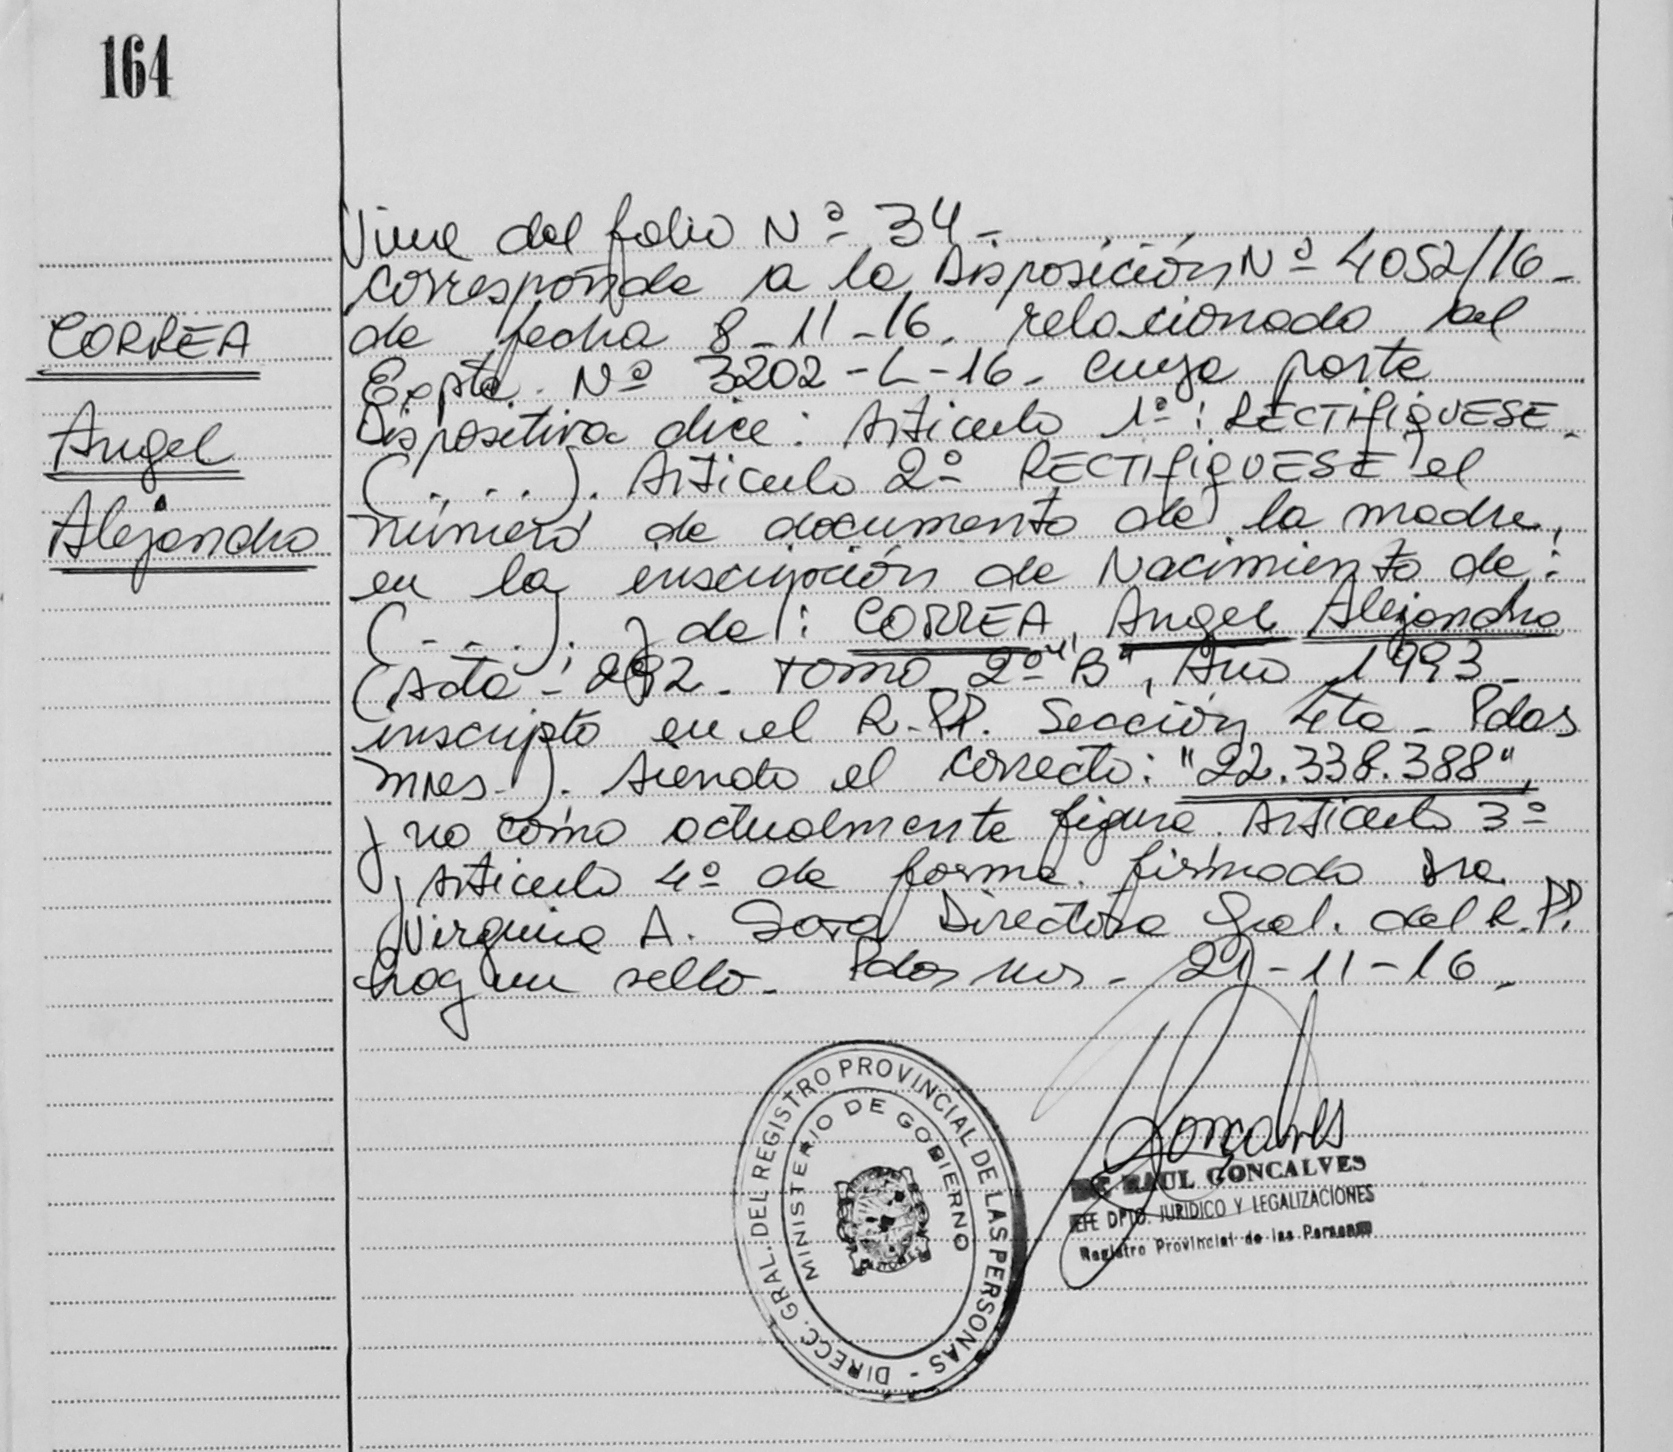 164
CORREA
Angel
Alejandro
Viene del folio Nº 34 -
corresponde a la Disposición Nº 4052/16 -
de fecha 8 - 11 - 16. relacionado al
Expte. Nº 3202 - L - 16 - cuya parte
Dispositiva dice: Articulo 1º: RECTIFIQUESE.
(.....). Articulo 2º RECTIFIQUESE el
número de documento de la madre,
en la inscripción de Nacimiento de:
(.....). y de: CORREA, Angel Alejandro
(Acta - 292 - tomo 2º "B", Año 1993 -
inscripto en el R.PP. Sección 4ta - Pdas
Mnes.). siendo el correcto: "22.338.388",
y no como actualmente figura. Articulo 3º
y Articulo 4º de forma. firmado Dra
Virginia A. Directora Gral. del R.PP.
hay un sello - Pdas Mns - 21 - 11 - 16 -
DIRECC. GRAL. DEL REGISTRO PROVINCIAL DE LAS PERSONAS -
MINISTERIO DE GOBIERNO
MISIONES
Goncalves
RAUL GONCALVES
JEFE DPTO. JURIDICO Y LEGALIZACIONES
Registro Provincial de las Personas